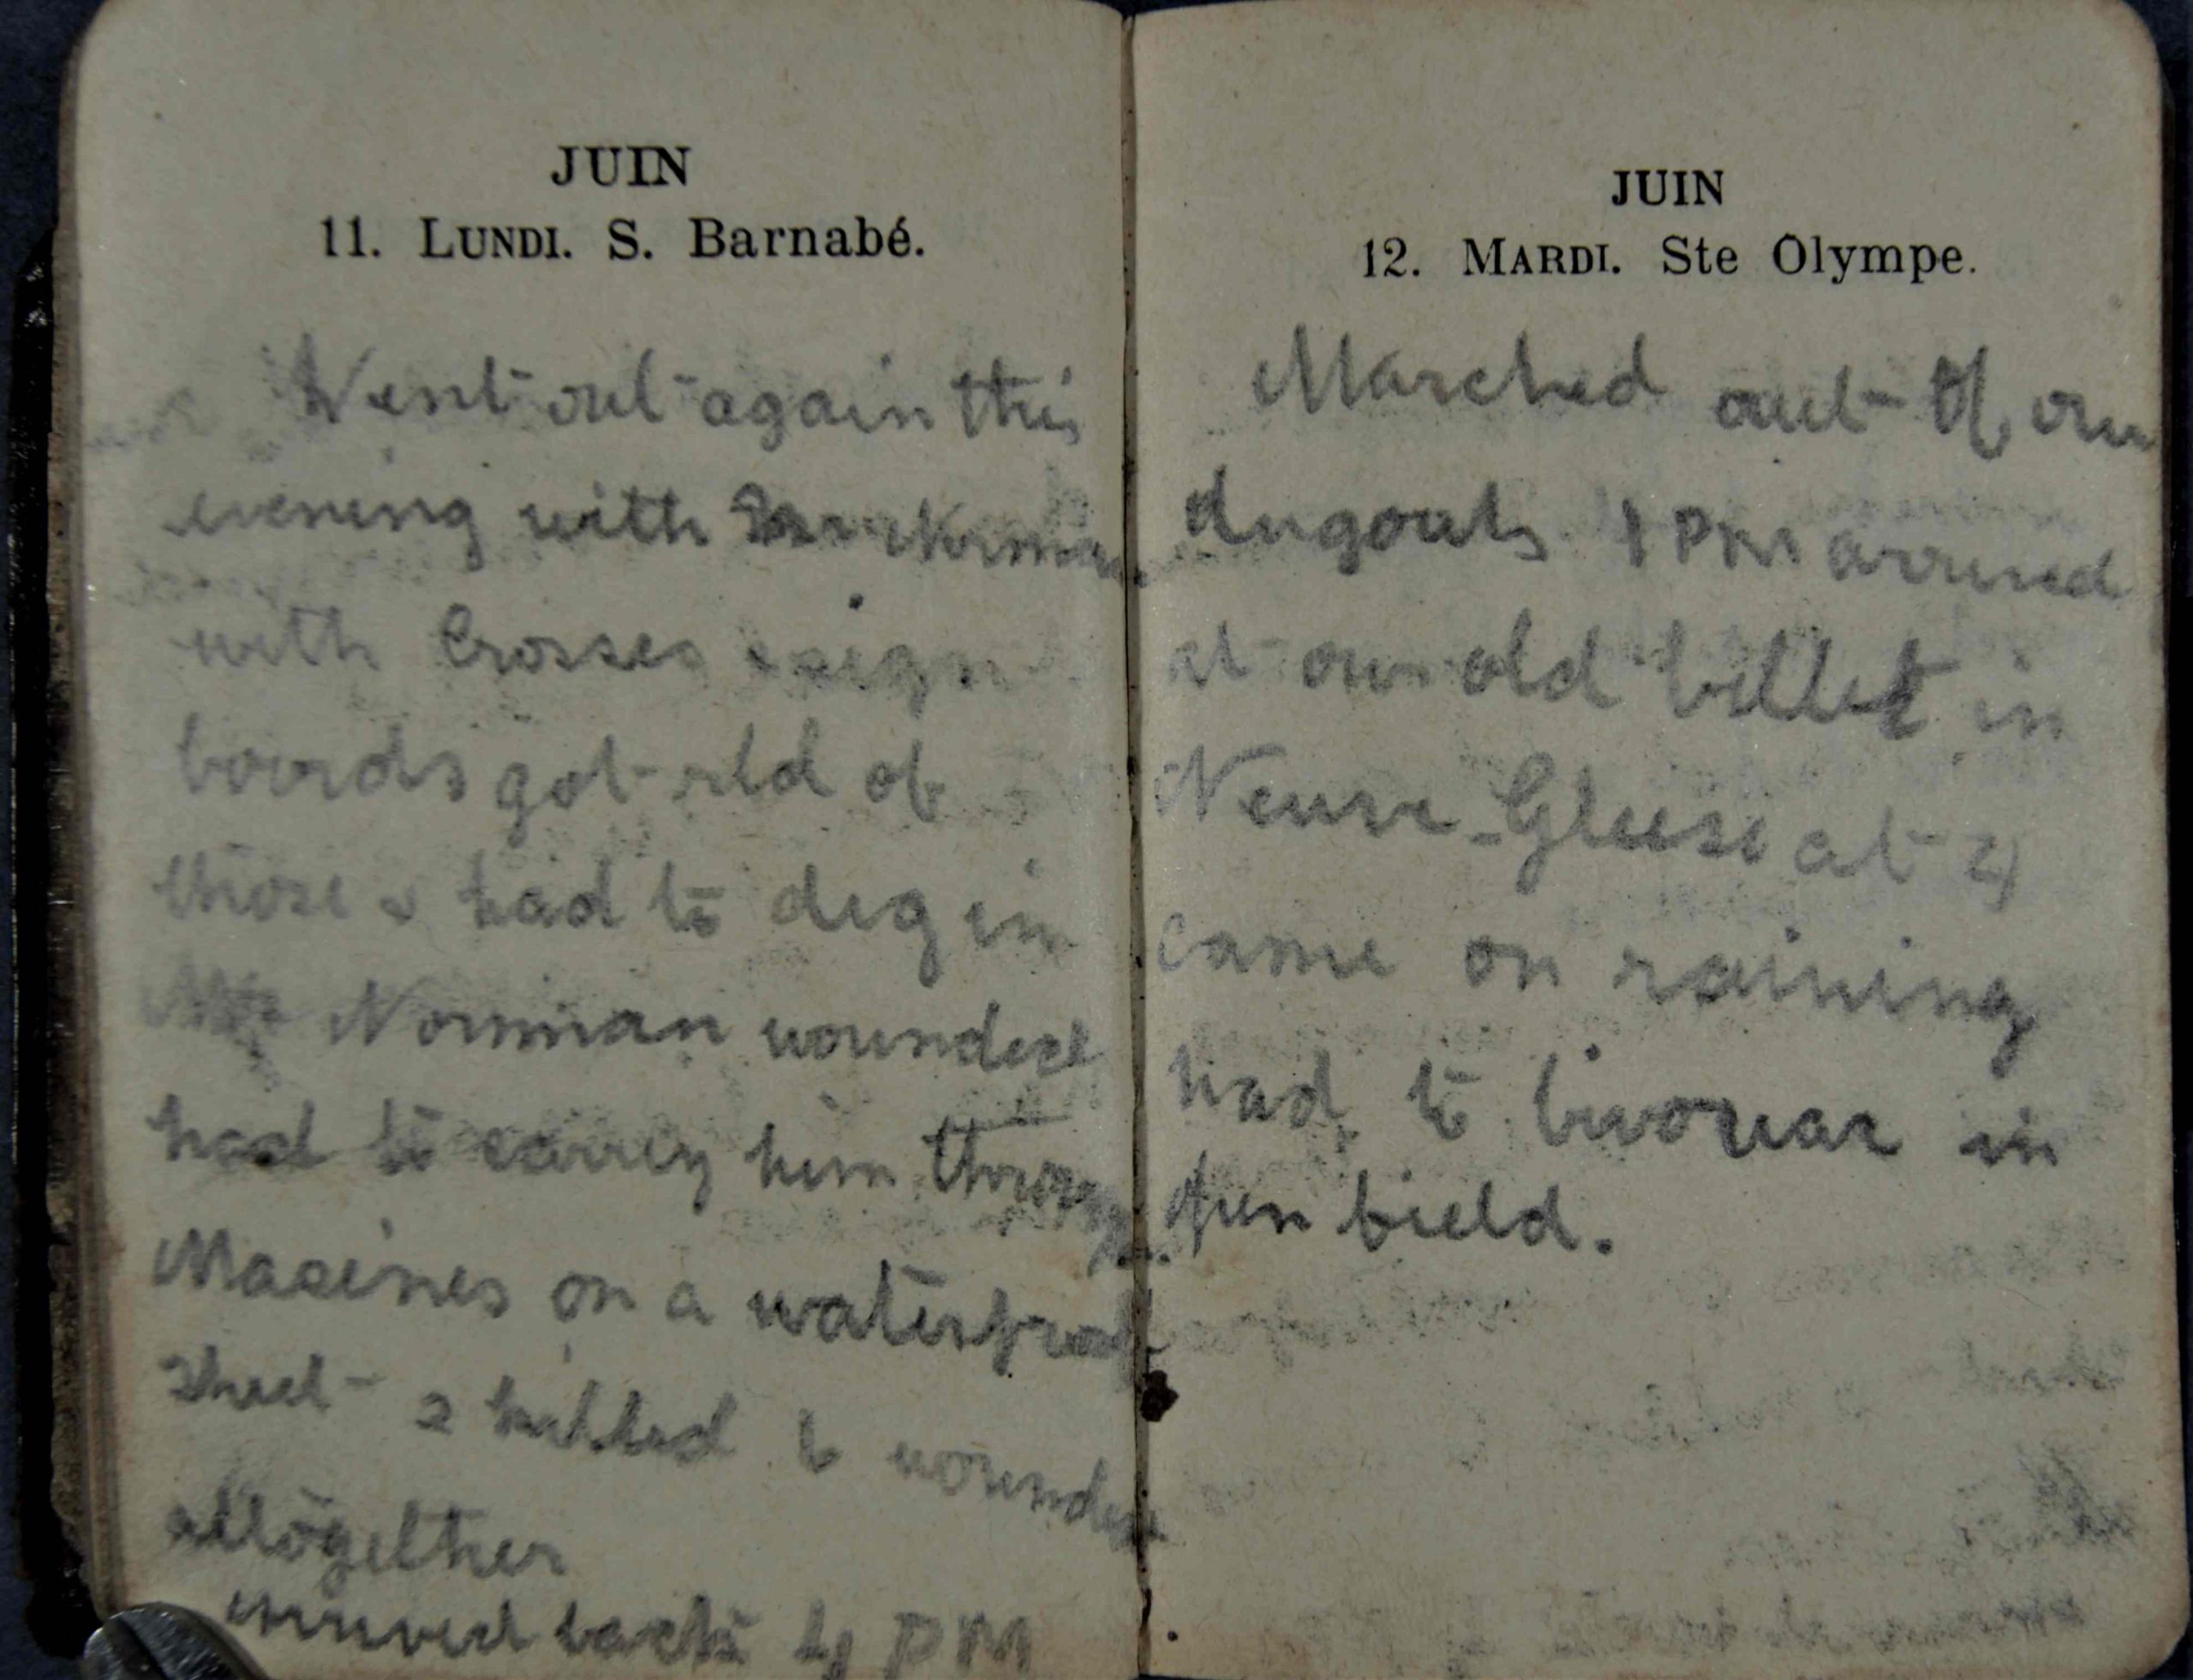 JUIN
11. LUNDI. S. Barnabé.
Went out again this
evening with
with Crosses & sign
boards got rid of
those & had to dig in
Mr Norman wounded
had to carry him through
Macines on a waterproof
sheet 2 killed 6 wounded
altogether
arrived back 4 PM
JUIN
12. MARDI. Ste Olympe.
Marched out of our
dugouts 1 PM arrived
at our old billet in
Neuve Gleese at 4
came on raining
had to bivouac in
field.